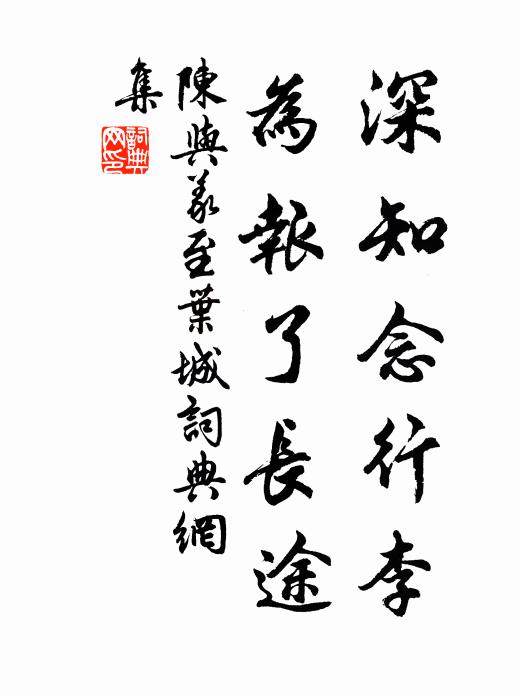 深知念行李
為報了長途
陳與義至葉城詞典網
集
詞典網印